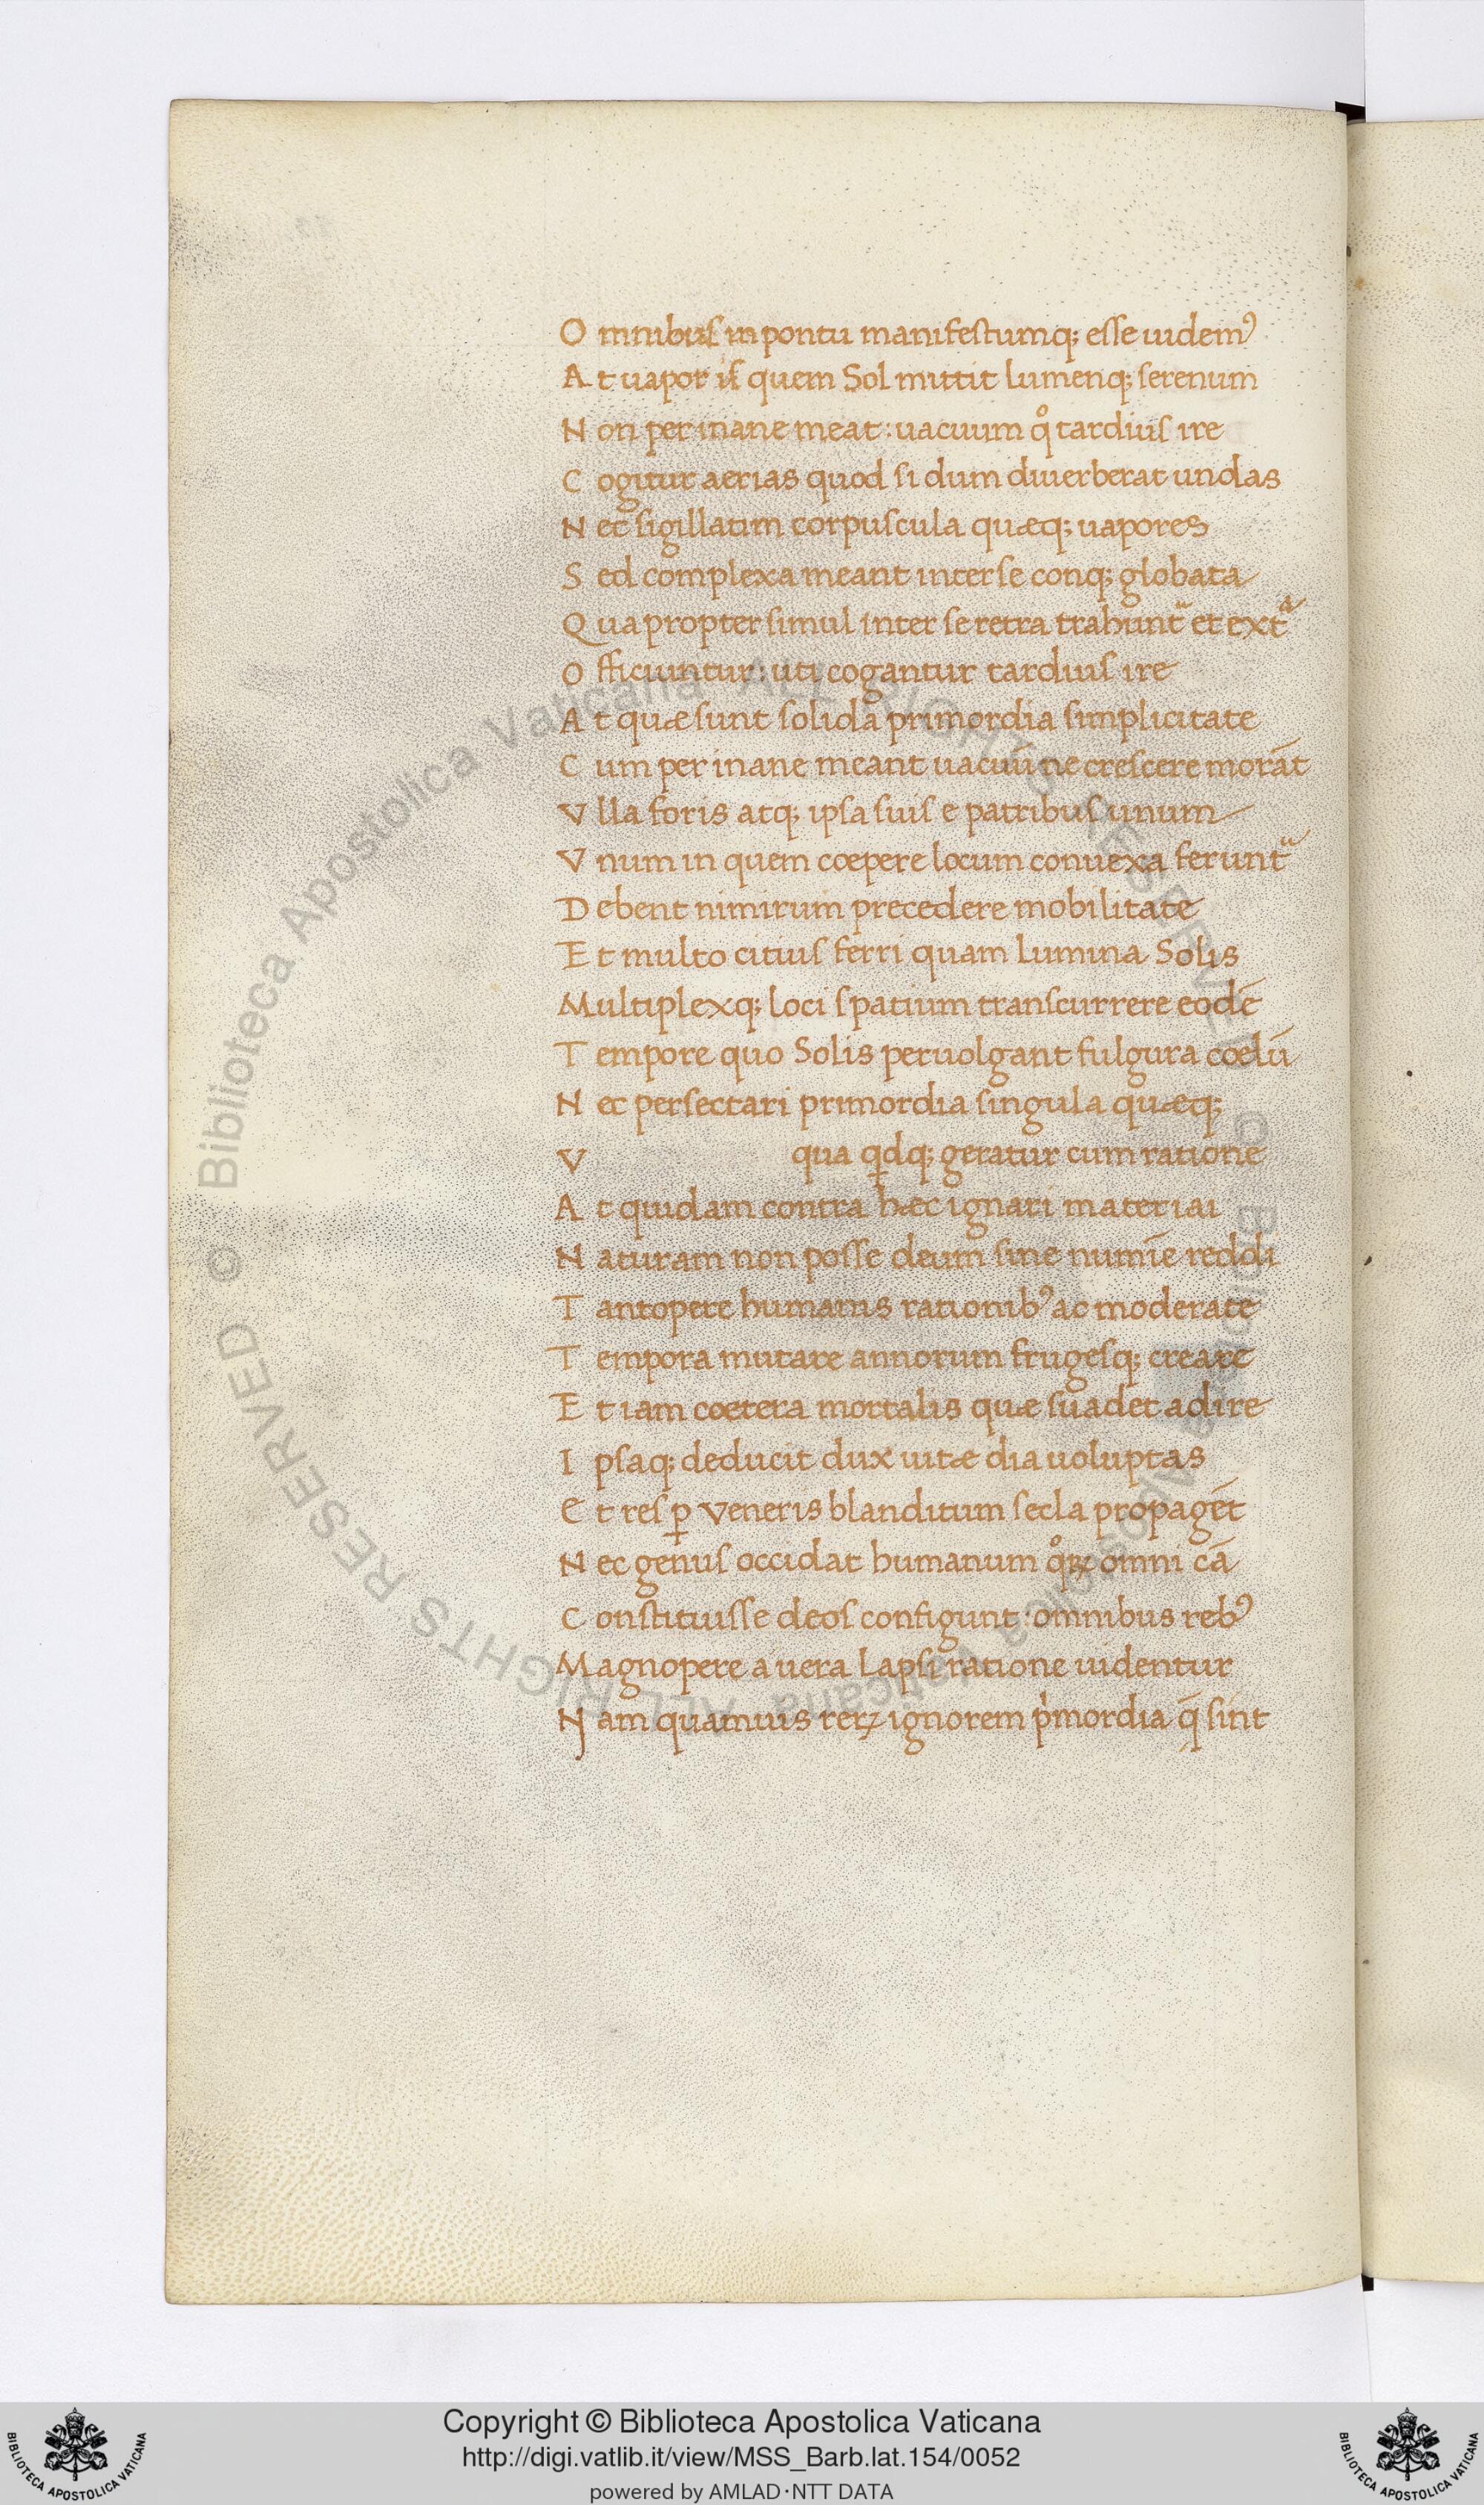 Omnibus in pontu manifestumq; esse uidemꝰ
At uapor is quem Sol mittit lumenq; serenum
Non per inane meat: uacuum qͦ tardius ire
Cogitur aerias quod si dum diuerberat undas
Nec sigillatim corpuscula quæq; uapores
Sed complexa meant inter se conq; globata
Quapropter simul inter se retra trahuntᷣ et extᷓ
Officiuntur: uti cogantur tardius ire
At quæ sunt solida primordia simplicitate
Cum per inane meant uacuū ne crescere morāt
Vlla foris atq; ipsa suis e patribus unum
Vnum in quem coepere locum conuexa feruntᷣ
Debent nimirum precedere mobilitate
Et multo citius ferri quam lumina Solis
Multiplexq; loci spatium transcurrere eodē
Tempore quo Solis peruolgant fulgura coelū
Nec persectari primordia singula quæq;
V qua qdq; geratur cum ratione
At quidam contra hæc ignari materiai
Naturam non posse deum sine numīe reddi
Tantopere humanis rationibꝰ ac moderate
Tempora mutare annorum frugesq; creare
Et iam coetera mortalis quæ suadet adire
Ipsaq; deducit dux uitæ dia uoluptas
Et res ꝑ Veneris blanditum secla propagēt
Nec genus occidat humanum qͦꝝ omni cā
Constituisse deos configunt: omnibus rebꝰ
Magnopere a uera lapsi ratione uidentur
Nam quamuis rerꝝ ignorem pͥmordia q̄ sint
Copyright © Biblioteca Apostolica Vaticana
http://digi.vatlib.it/view/MSS_Barb.lat.154/0052
powered by AMLAD·NTT DATA
BIBLIOTECA APOSTOLICA VATICANA
BIBLIOTECA APOSTOLICA VATICANA
© Biblioteca Apostolica Vaticana ALL RIGHTS RESERVED
© Biblioteca Apostolica Vaticana ALL RIGHTS RESERVED